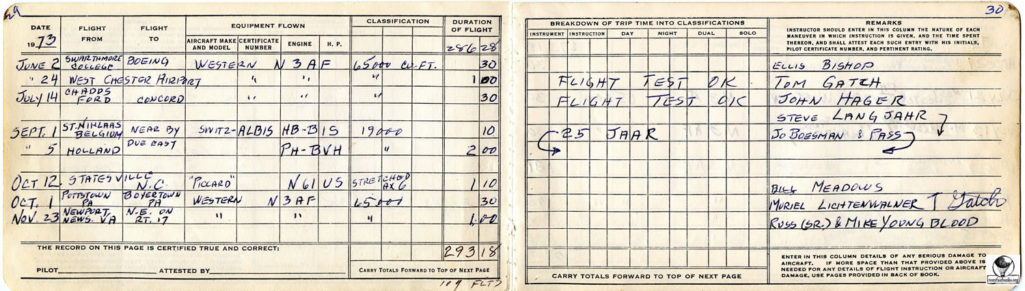 29
DATE 1973 FLIGHT FROM FLIGHT TO EQUIPMENT FLOWN CLASSIFICATION DURATION OF FLIGHT
AIRCRAFT MAKE AND MODEL CERTIFICATE NUMBER ENGINE H. P. 286 28
JUNE 2 SWARTHMORE COLLEGE BOEING WESTERN N3AF 65000 CU. FT. 30
" 24 WEST CHESTER AIRPORT " " " 1 00
JULY 14 CHADDS FORD CONCORD " " " 30
SEPT. 1 ST. NIKLAAS BELGIUM NEAR BY SWITZ-ALBIS HB-BIS 19000 10
" 5 HOLLAND DUE EAST PH-BVH " 2 00
OCT 12 STATESVILLE N.C "PICCARD" N61US STRETCHED AX6 1 10
OCT. 1 POTTSTOWN PA BOYERTOWN PA WESTERN N3AF 65000 30
NOV. 23 NEWPORT NEWS VA N.E. ON RT. 17 " " " 1.00
THE RECORD ON THIS PAGE IS CERTIFIED TRUE AND CORRECT: 293 18
PILOT ATTESTED BY CARRY TOTALS FORWARD TO TOP OF NEXT PAGE
109 FLTS
30
BREAKDOWN OF TRIP TIME INTO CLASSIFICATIONS
INSTRUMENT INSTRUCTION DAY NIGHT DUAL SOLO
REMARKS
INSTRUCTOR SHOULD ENTER IN THIS COLUMN THE NATURE OF EACH
MANEUVER IN WHICH INSTRUCTION IS GIVEN, AND THE TIME SPENT
THEREON, AND SHALL ATTEST EACH SUCH ENTRY WITH HIS INITIALS,
PILOT CERTIFICATE NUMBER, AND PERTINENT RATING.
ELLIS BISHOP
FLIGHT TEST OK TOM GATCH
FLIGHT TEST OK JOHN HAGER
STEVE LANGJAHR
25 JAAR JO BOESMAN & PASS
BILL MEADOWS
MURIEL LICHTENWALNER T Gatch
RUSS (SR.) & MIKE YOUNGBLOOD
CARRY TOTALS FORWARD TO TOP OF NEXT PAGE
ENTER IN THIS COLUMN DETAILS OF ANY SERIOUS DAMAGE TO
AIRCRAFT. IF MORE SPACE THAN THAT PROVIDED ABOVE IS
NEEDED FOR ANY DETAILS OF FLIGHT INSTRUCTION OR AIRCRAFT
DAMAGE, USE PAGES PROVIDED IN BACK OF BOOK.